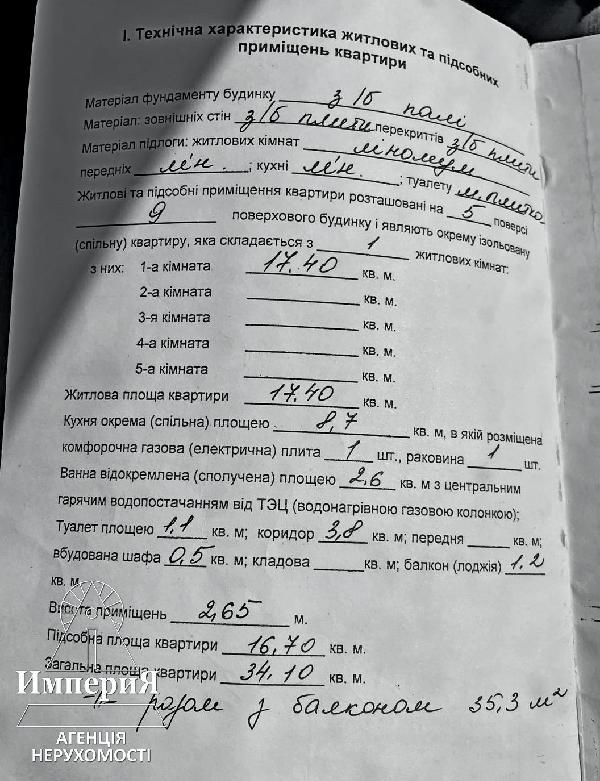 І. Технічна характеристика житлових та підсобних
приміщень квартири
Матеріал фундаменту будинку з/б палі
Матеріал: зовнішніх стін з/б плити перекриттів з/б плити
Матеріал підлоги: житлових кімнат лінолеум
передніх лін. ; кухні лін. ; туалету м.плитка
Житлові та підсобні приміщення квартири розташовані на 5 поверсі
9 поверхового будинку і являють окрему ізольовану
(спільну) квартиру, яка складається з 1 житлових кімнат:
з них: 1-а кімната 17.40 кв. м.
2-а кімната кв. м.
3-я кімната кв. м.
4-а кімната кв. м.
5-а кімната кв. м.
Житлова площа квартири 17.40 кв. м.
Кухня окрема (спільна) площею 8,7 кв. м, в якій розміщена
комфорочна газова (електрична) плита 1 шт., раковина 1 шт.
Ванна відокремлена (сполучена) площею 2,6 кв. м з центральним
гарячим водопостачанням від ТЭЦ (водонагрівною газовою колонкою);
Туалет площею 1.1 кв. м; коридор 3,8 кв. м; передня кв. м;
вбудована шафа 0,5 кв. м; кладова кв. м; балкон (лоджія) 1.2
кв. м.
Висота приміщень 2,65 м.
Підсобна площа квартири 16,70 кв. м.
Загальна площа квартири 34.10 кв. м.
ИмпериЯ
-"- разом з балконом 35,3 м²
АГЕНЦІЯ
НЕРУХОМОСТІ